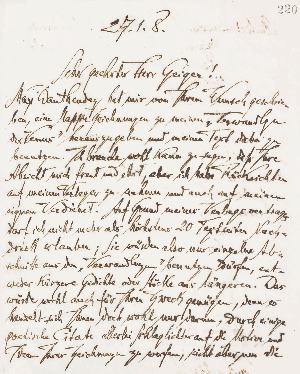 220
27.1.8.
Sehr geehrter Herr Geiger!
Max Dauthendey hat mir von Ihrem Wunsch geschrie-
ben, eine Mappe Zeichnungen zu meinen „Verwandlgn.
der Venus" herauszugeben und meinen Text dazu zu
benutzen. Ich brauche wohl kaum zu sagen, daß Ihre
Absicht mich freut und ehrt, aber ich habe Rücksichten
auf meinen Verleger zu nehmen und auch auf meinen
eigenen Verdienst. Auf Grund meiner
darf ich nicht mehr als höchstens 20 Textseiten Nach-
druck erlauben; Sie würden also nur einzelne Ab-
schnitte aus den „Verwandlungen" benutzen dürfen, ent-
weder kürzere Gedichte oder Stücke aus längeren. Das
würde wohl auch für Ihren Zweck genügen, denn es
handelt sich Ihnen doch wohl nur darum, durch einige
poetische Citate allerlei Schlaglichter auf die Motive und
Ideen Ihrer Zeichnungen zu werfen, nicht aber um die